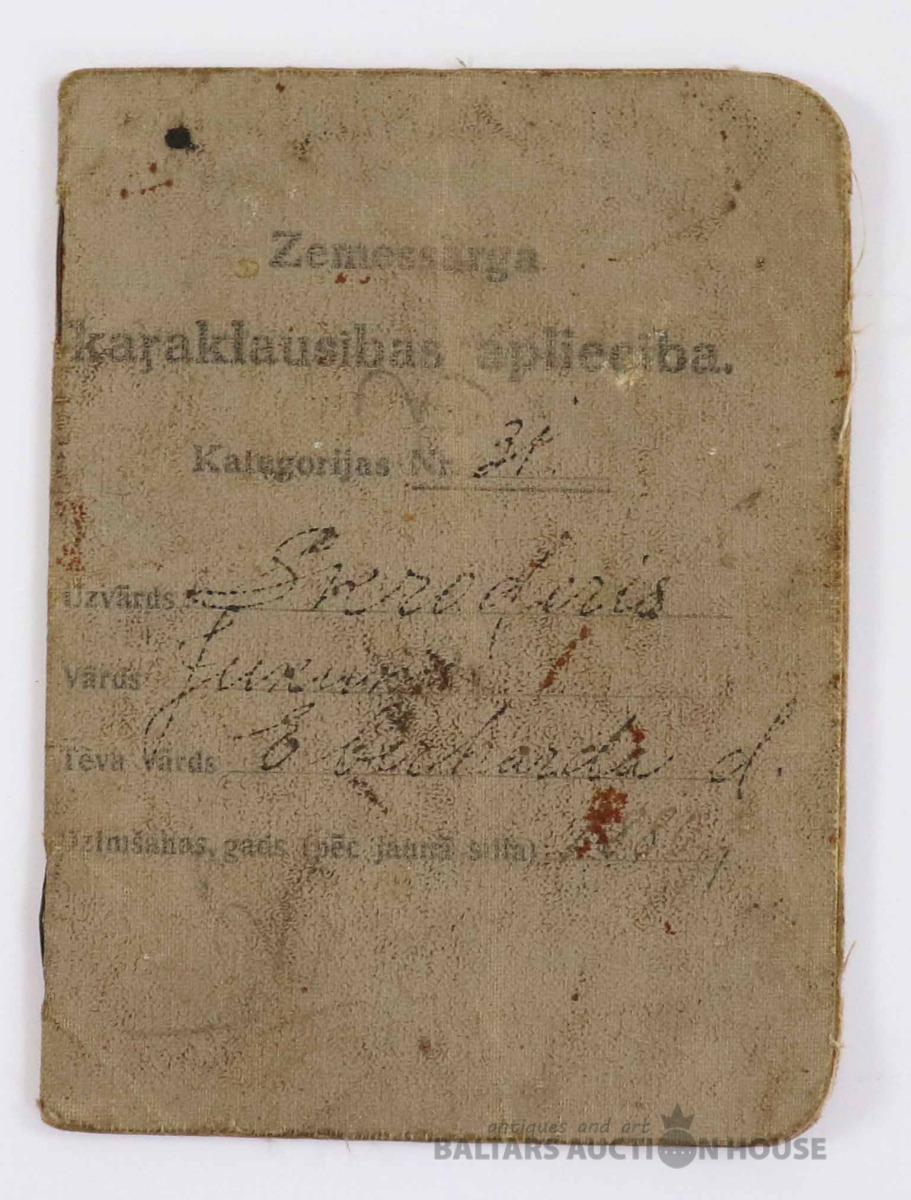 Zemessarga
kaŗaklausības apliecība.
Kategorijas Nr. 31.
Uzvārds
Vārds
Tēva vārds Eberharda d.
Dzimšanas, gads (pēc jaunā stila)
antiques and art
BALTARS AUCTION HOUSE